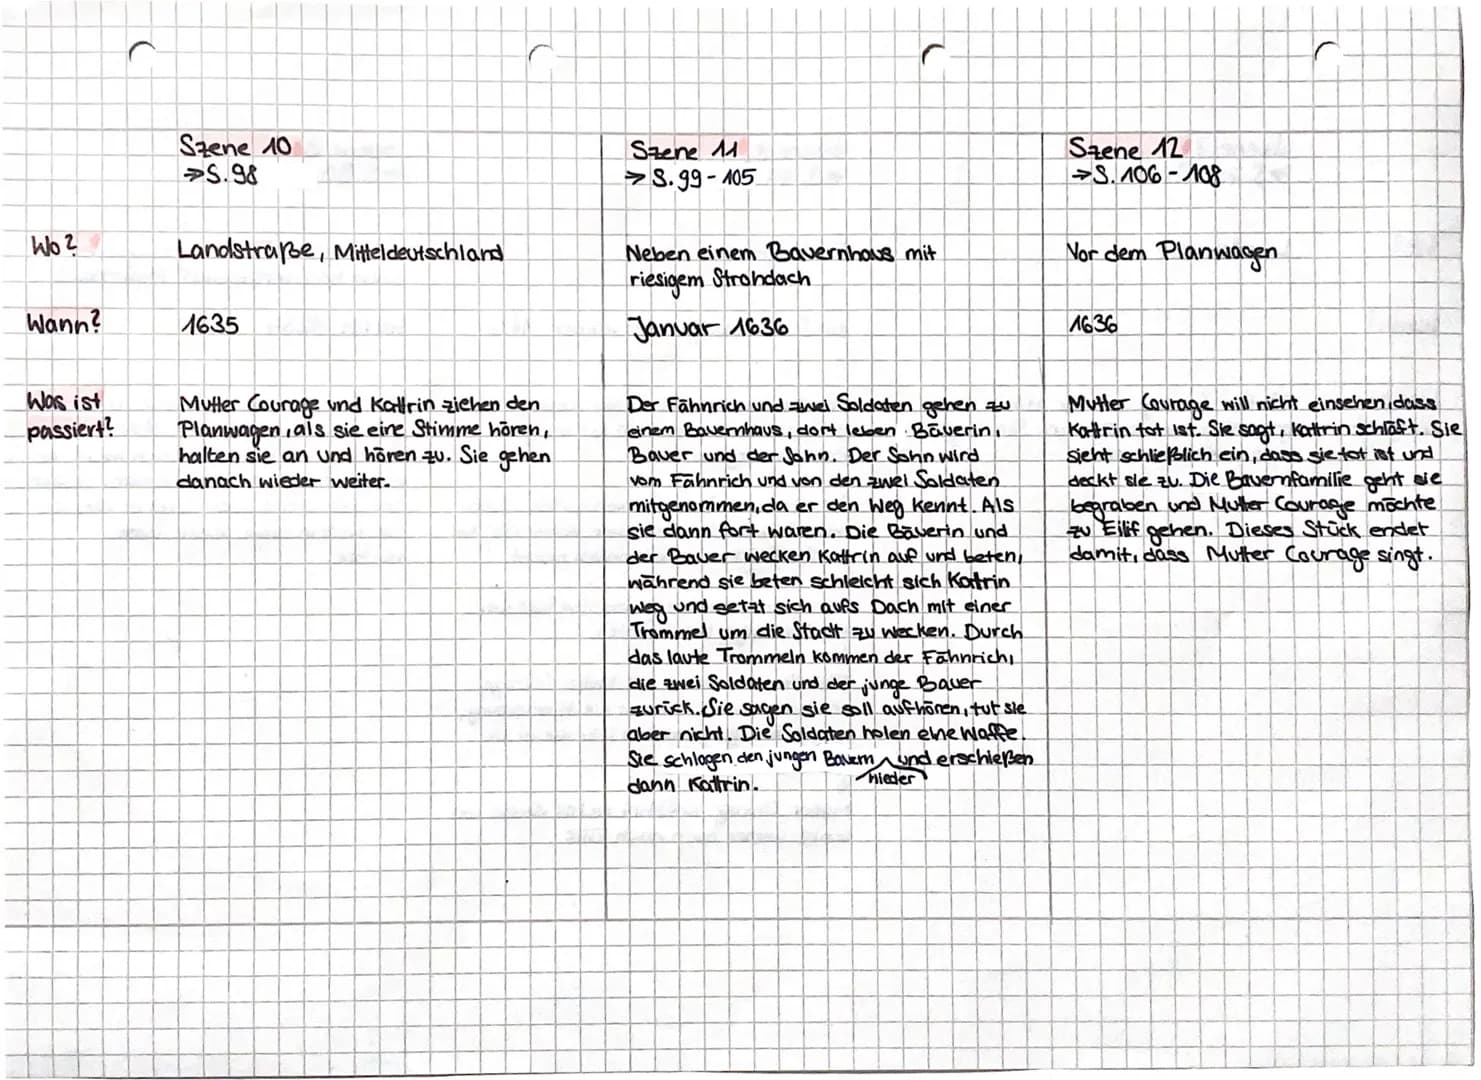 Szene 10
⇒S. 98
Szene 11
⇒ S. 99 - 105
Szene 12
⇒S. 106 - 108
Wo?
Landstraße, Mitteldeutschland
Neben einem Bauernhaus mit
riesigem Strohdach
Vor dem Planwagen
Wann?
1635
Januar 1636
1636
Was ist
passiert?
Mutter Courage und Kattrin ziehen den
Planwagen, als sie eine Stimme hören,
halten sie an und hören zu. Sie gehen
danach wieder weiter.
Der Fähnrich und zwei Soldaten gehen zu
einem Bauernhaus, dort leben Bäuerin,
Bauer und der Sohn. Der Sohn wird
vom Fähnrich und von den zwei Soldaten
mitgenommen, da er den Weg kennt. Als
sie dann fort waren. Die Bäuerin und
der Bauer wecken Kattrin auf und beten,
während sie beten schleicht sich Kattrin
weg und setzt sich aufs Dach mit einer
Trommel um die Stadt zu wecken. Durch
das laute Trommeln kommen der Fähnrich,
die zwei Soldaten und der junge Bauer
zurück. Sie sagen sie soll aufhören, tut sie
aber nicht. Die Soldaten holen eine Waffe.
Sie schlagen den jungen Bauern und erschießen
nieder
dann Kattrin.
Mutter Courage will nicht einsehen, dass
Kattrin tot ist. Sie sagt, Kattrin schläft. Sie
sieht schließlich ein, dass sie tot ist und
deckt sie zu. Die Bauernfamilie geht sie
begraben und Mutter Courage möchte
zu Eilif gehen. Dieses Stück endet
damit, dass Mutter Courage singt.